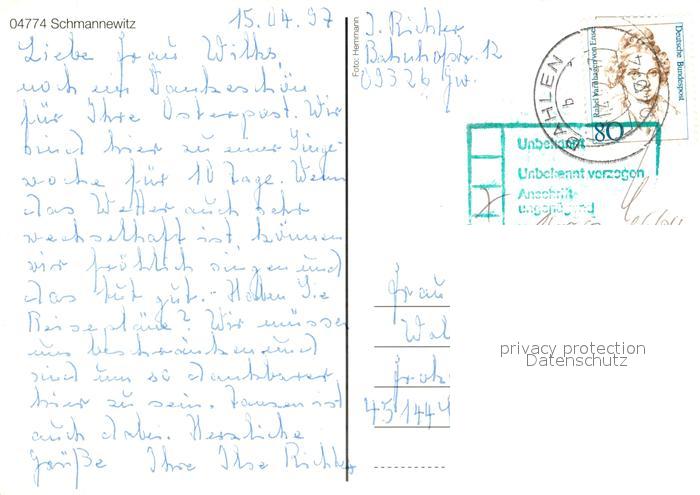 04774 Schmannewitz
15.04.97
Liebe Frau Wilks,
noch ein Dankeschön
für Ihre Osterpost. Wir
sind hier zu einer Singe-
woche für 10 Tage. Wenn
das Wetter auch sehr
wechselhaft ist können
wir fröhlich singen und
das tut gut. - Haben Sie
Reisepläne? Wir müssen
uns beschränken und
sind um so dankbarer
hier zu sein. Hansen ist
auch dabei. Herzliche
Grüße Ihre Ilse Richter
Foto: Herrmann
I. Richter
Bahnhofstr. 12
09326 Gw.
DAHLEN
Rahel Varnhagen von Ense
Deutsche Bundespost
80
Unbekannt
Unbekannt verzogen
Anschrift
ungenügend
Frau
Wal
45144
privacy protection
Datenschutz